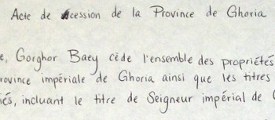 Acte de cession de la Province de Ghoria
e, Gorghor Baey cède l'ensemble des propriétés
rovince impériale de Ghoria ainsi que les titres
és, incluant le titre de Seigneur impérial de G